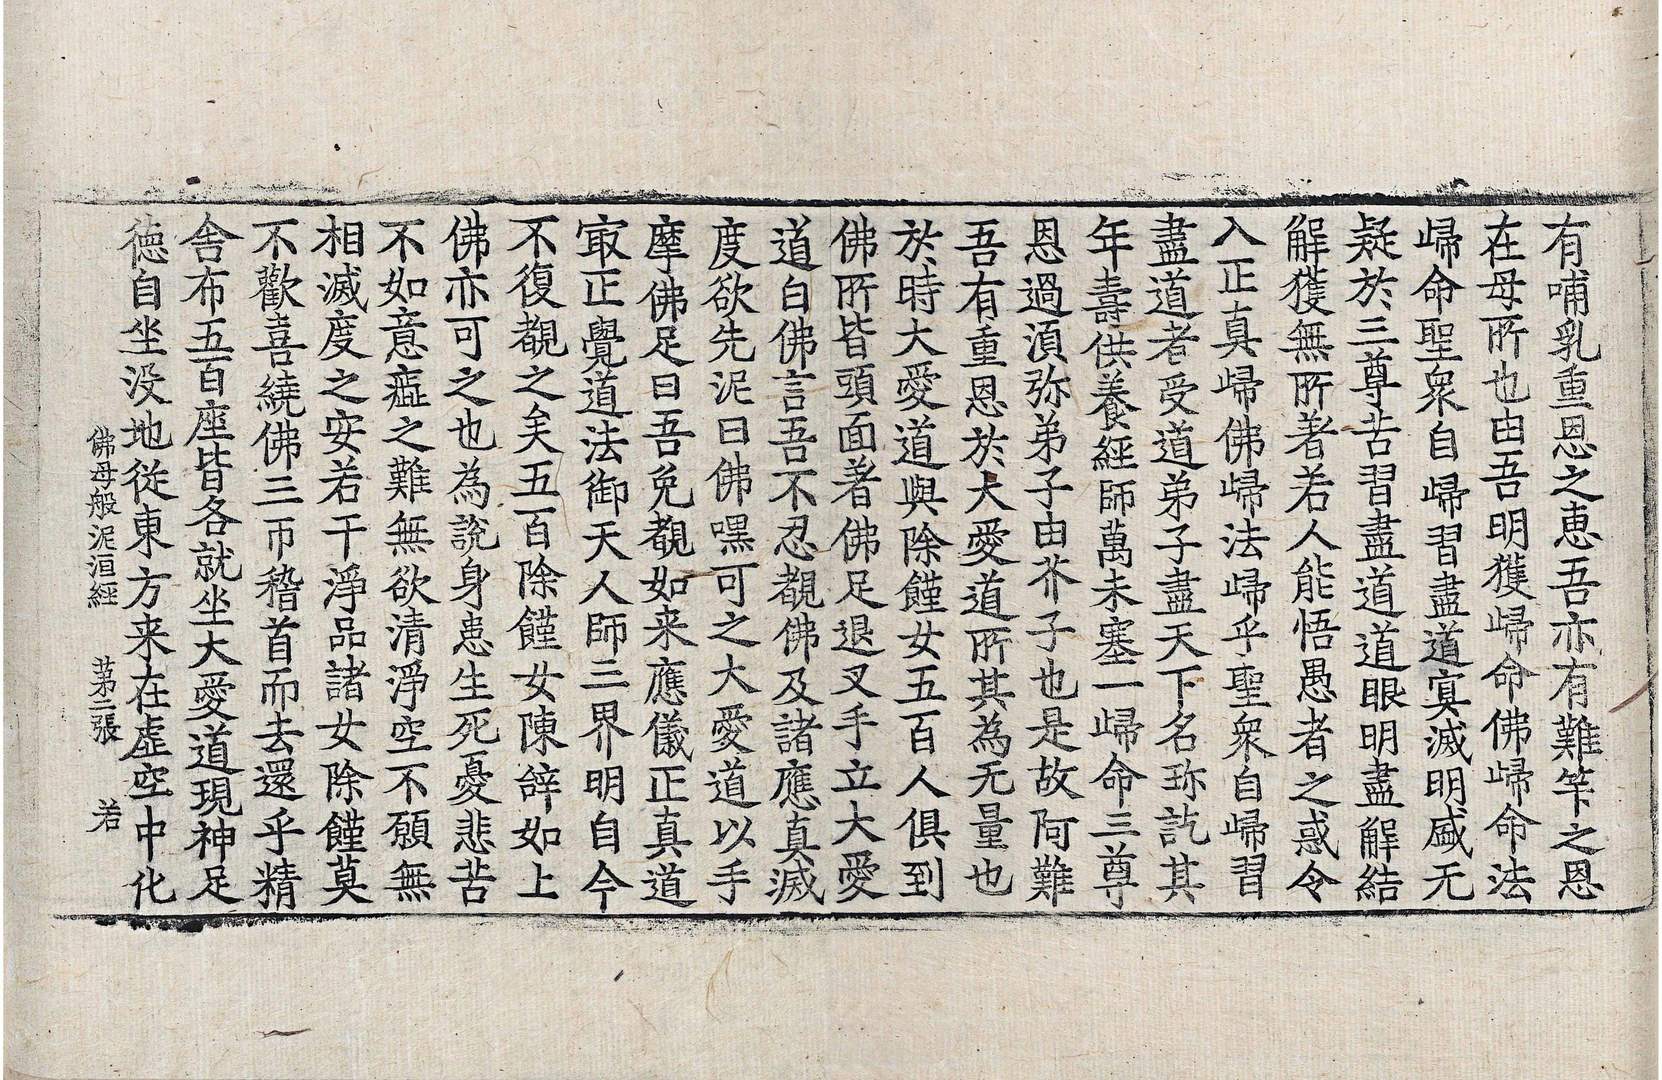 有哺乳重恩之恵吾亦有難筭之恩
在母所也由吾明獲歸命佛歸命法
歸命聖衆自歸習盡道寞滅明盛无
疑於三尊苦習盡道道眼明盡解結
解獲無所著若人能悟愚者之惑令
入正真歸佛歸法歸乎聖衆自歸習
盡道者受道弟子盡天下名珎訖其
年壽供養經師萬未塞一歸命三尊
恩過湏弥弟子由芥子也是故阿難
吾有重恩於大愛道所其為无量也
於時大愛道與除饉女五百人俱到
佛所皆頭面著佛足退叉手立大愛
道白佛言吾不忍覩佛及諸應真滅
度欲先泥曰佛嘿可之大愛道以手
摩佛足曰吾免覩如来應儀正真道
㝡正覺道法御天人師三界明自今
不復覩之矣五百除饉女陳辝如上
佛亦可之也為說身患生死憂悲苦
不如意𢙢之難無欲清淨空不願無
相滅度之安若干淨品諸女除饉莫
不歡喜繞佛三帀稽首而去還乎精
舎布五百座皆各就坐大愛道現神足
徳自坐没地従東方来在虛空中化
佛母般泥洹經 第二張 若